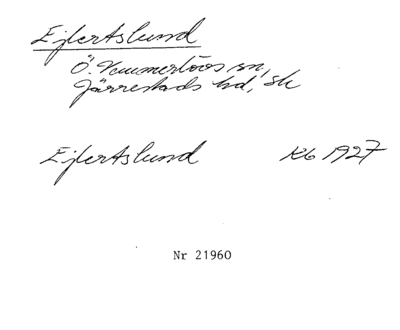 Ejlertslund
Ö. Vemmerlövs sn,
Järrestads hd, Sk
Ejlertslund Kb 1927
Nr 21960